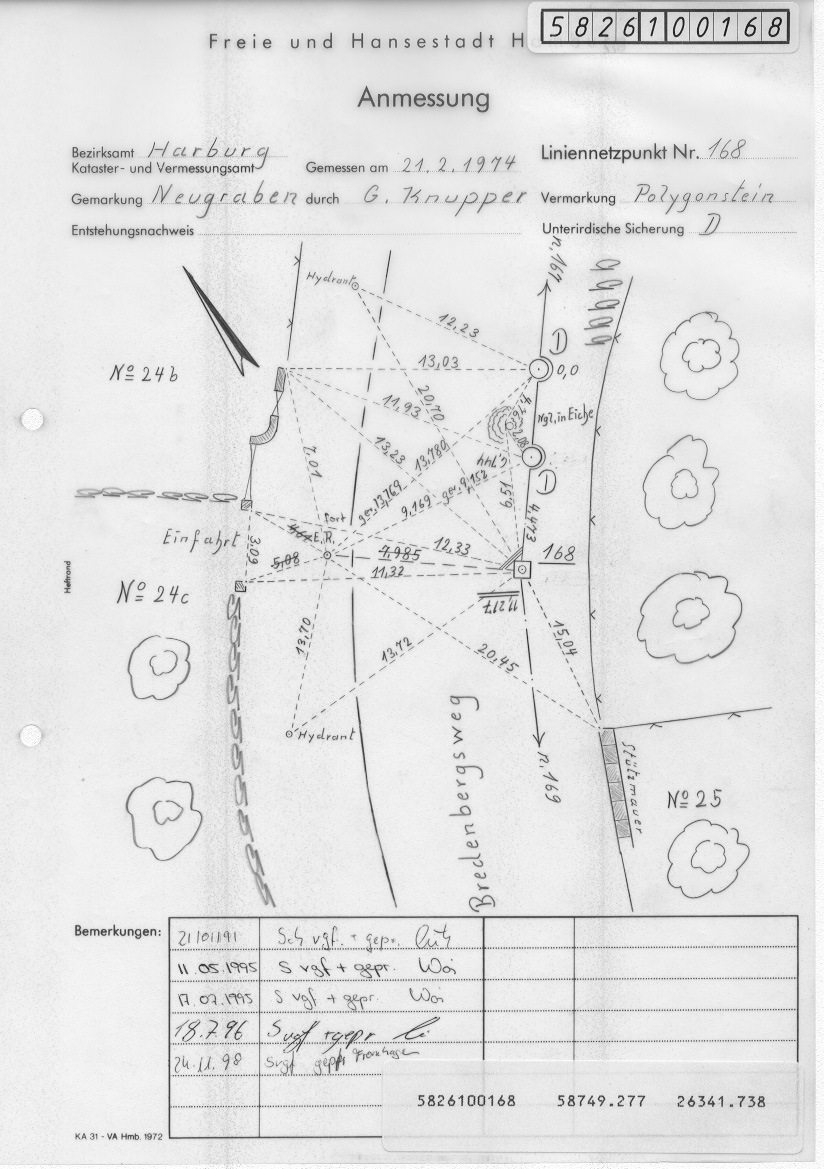 5826100168
Freie und Hansestadt H
Anmessung
Bezirksamt Harburg
Kataster- und Vermessungsamt
Gemessen am 21.2.1974
Liniennetzpunkt Nr. 168
Gemarkung Neugraben
durch G. Knupper
Vermarkung Polygonstein
Entstehungsnachweis
Unterirdische Sicherung D
n. 167
Hydrant
12,23
D
13,03
0,0
No 24b
11,93
20,70
Ngl. in Eiche
13,23
13,780
7,01
ger. 13,769
9,169
ger. 9,152
D
4,473
fort
E.R.
Einfahrt
3,09
5,08
7,985
12,33
168
11,32
Heftrand
No 24c
11,217
13,70
13,72
20,45
15,04
Hydrant
Bredenbergsweg
n. 169
Stützmauer
No 25
Bemerkungen:
21/01/91 Sch vgf. + gepr.
11.05.1995 S vgf + gepr. Wöi
17.07.1995 S vgf + gepr. Wöi
18.7.96 Svgf + gepr
24.11.98 Svgf gepr
5826100168 58749.277 26341.738
KA 31 - VA Hmb. 1972